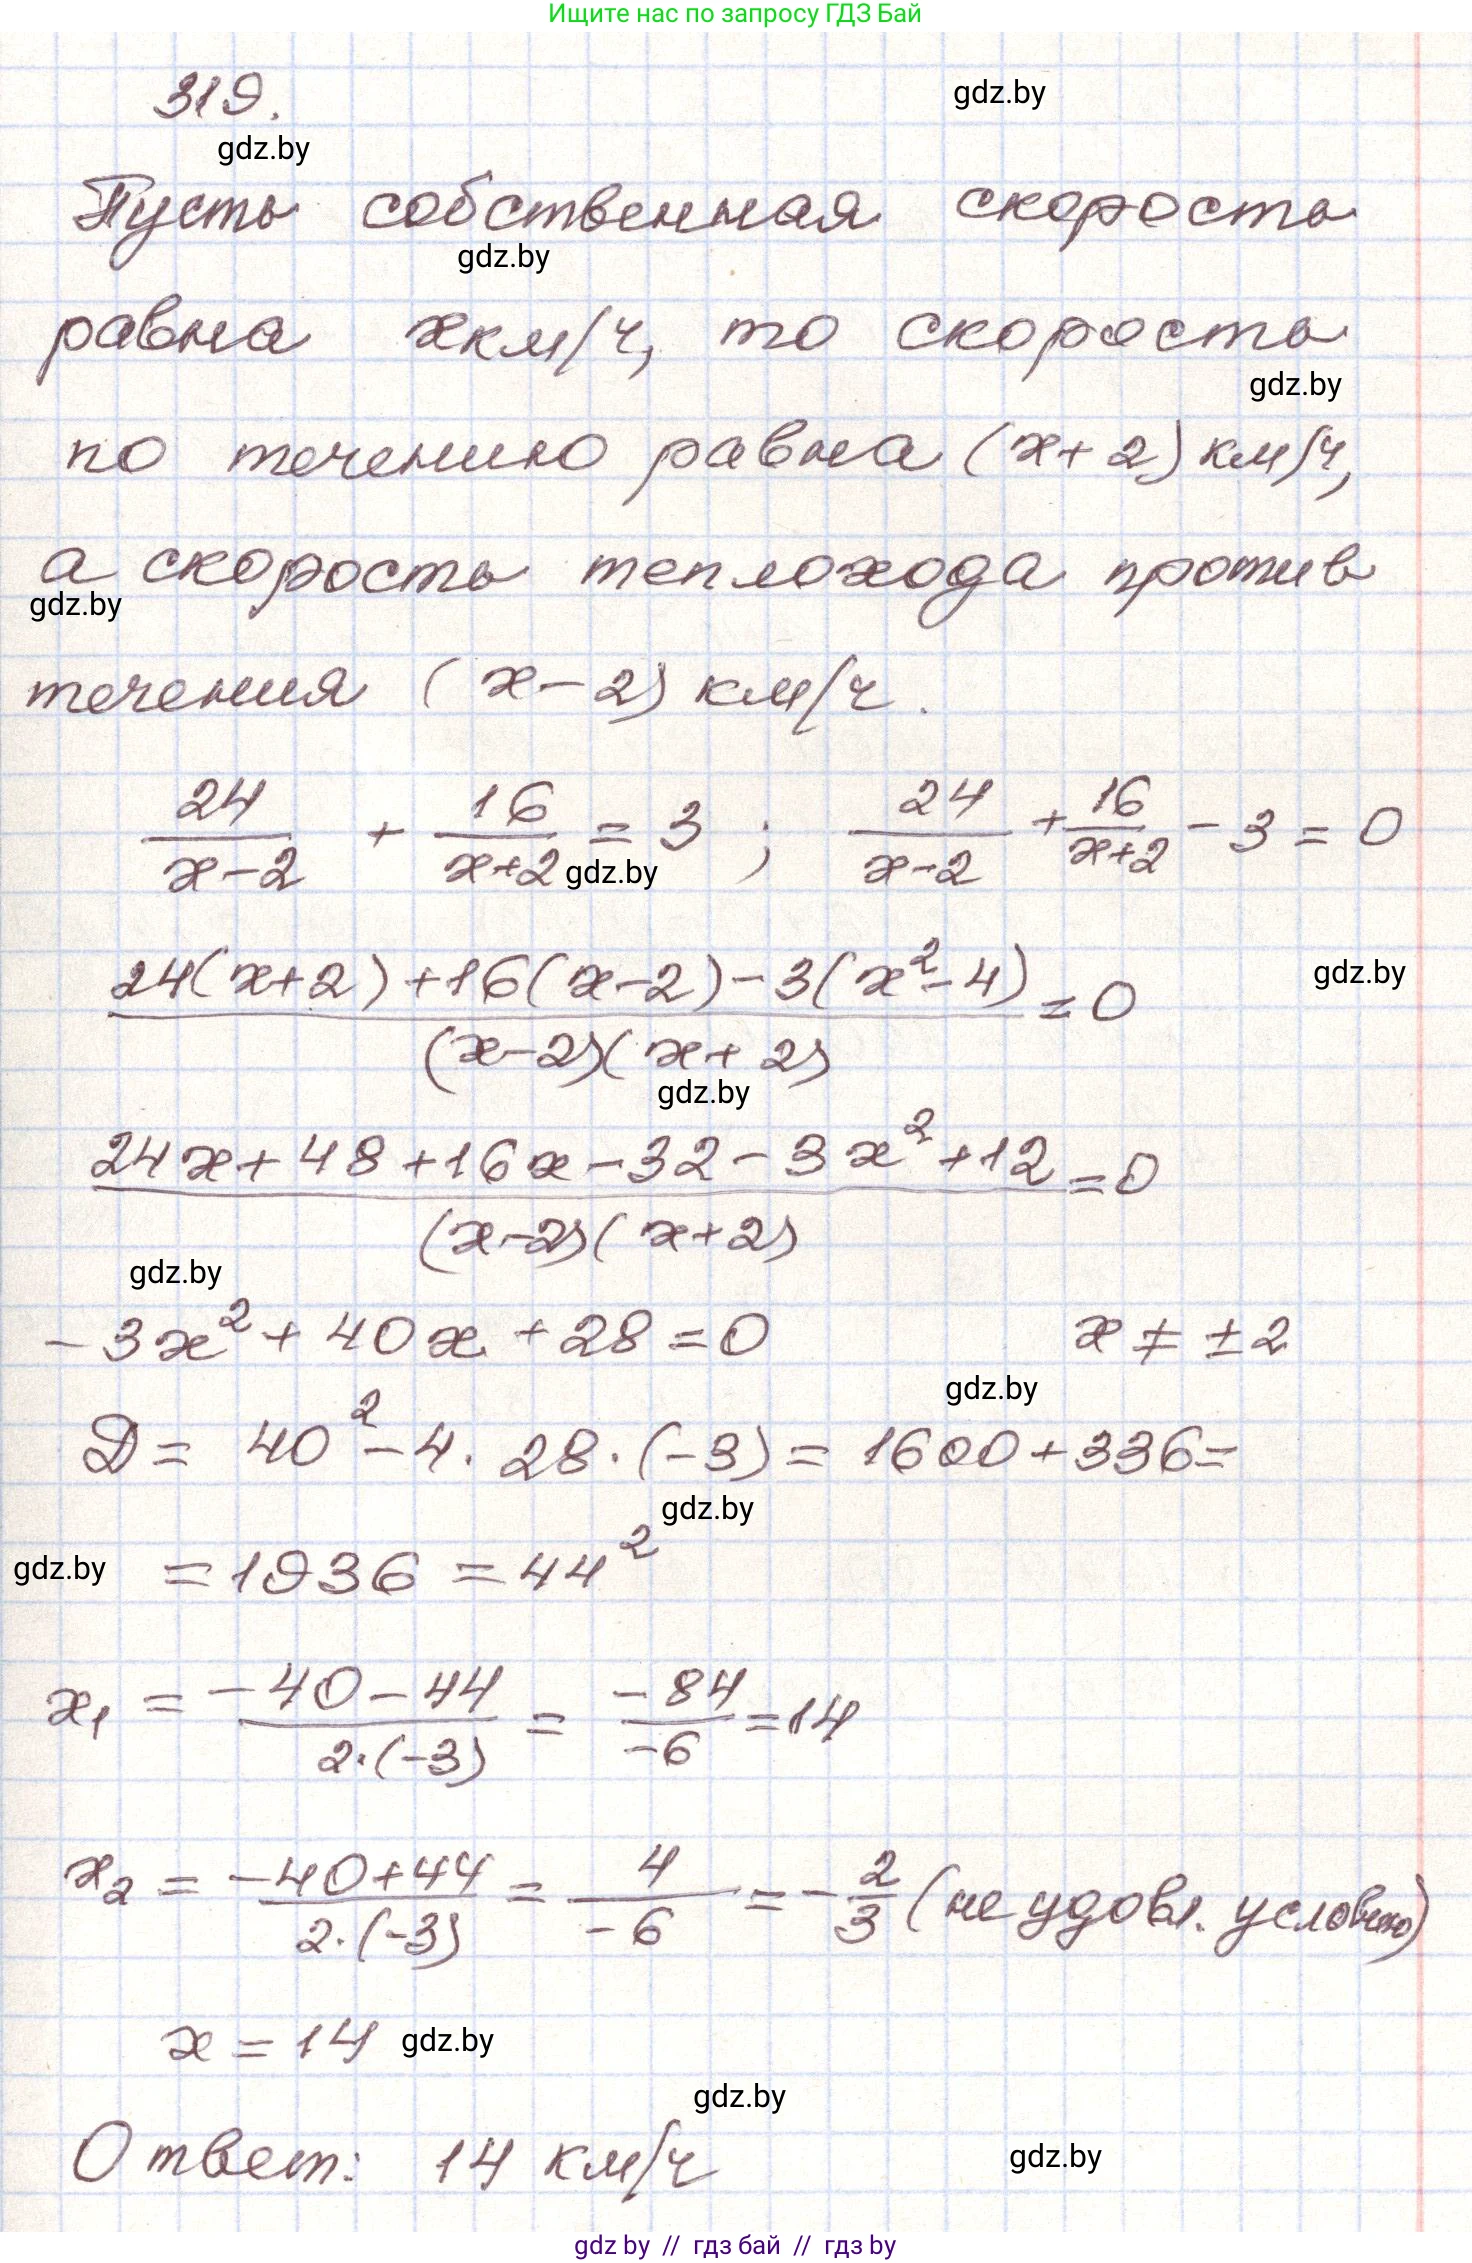 Ищите нас по запросу ГДЗ Бай
319.
gdz.by
gdz.by
Пусть собственная скорость
gdz.by
равна x км/ч, то скорость
gdz.by
по течению равна (x+2) км/ч,
а скорость теплохода против
gdz.by
течения (x-2) км/ч.
24/(x-2) + 16/(x+2) = 3 ; 24/(x-2) + 16/(x+2) - 3 = 0
gdz.by
(24(x+2)+16(x-2)-3(x²-4))/((x-2)(x+2)) = 0
gdz.by
gdz.by
(24x+48+16x-32-3x²+12)/((x-2)(x+2)) = 0
gdz.by
-3x²+40x+28=0 x ≠ ±2
gdz.by
D = 40²-4·28·(-3) = 1600+336=
gdz.by
gdz.by
=1936 = 44²
x₁ = (-40-44)/(2·(-3)) = -84/-6 = 14
x₂ = (-40+44)/(2·(-3)) = 4/-6 = -2/3 (не удовл. условию)
x = 14
gdz.by
gdz.by
Ответ: 14 км/ч
gdz.by
gdz by // гдз бай // гдз by